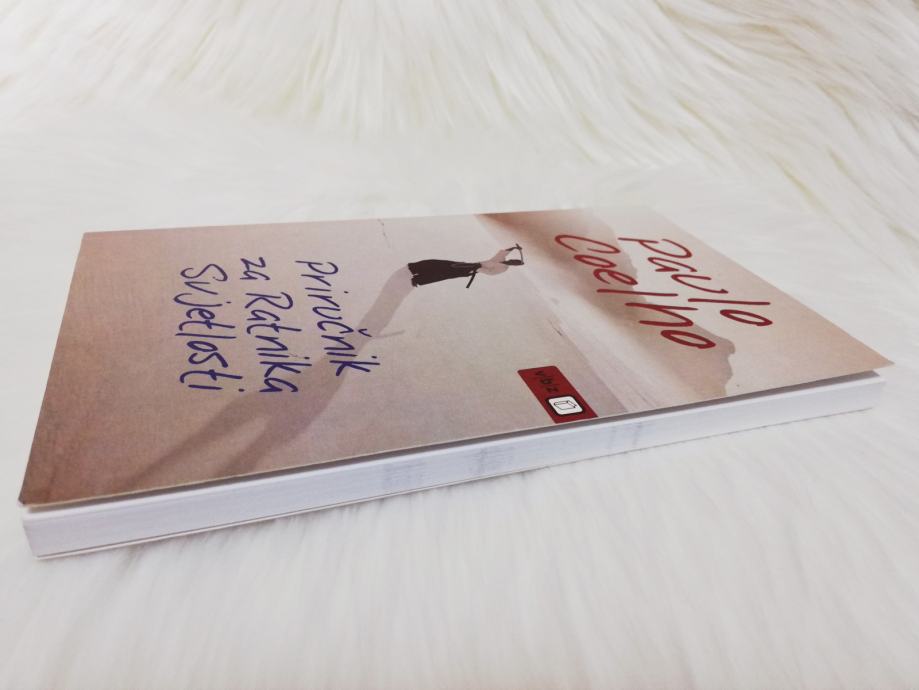 Paulo
Coelho
Priručnik
za Ratnika
Svjetlosti
vbz